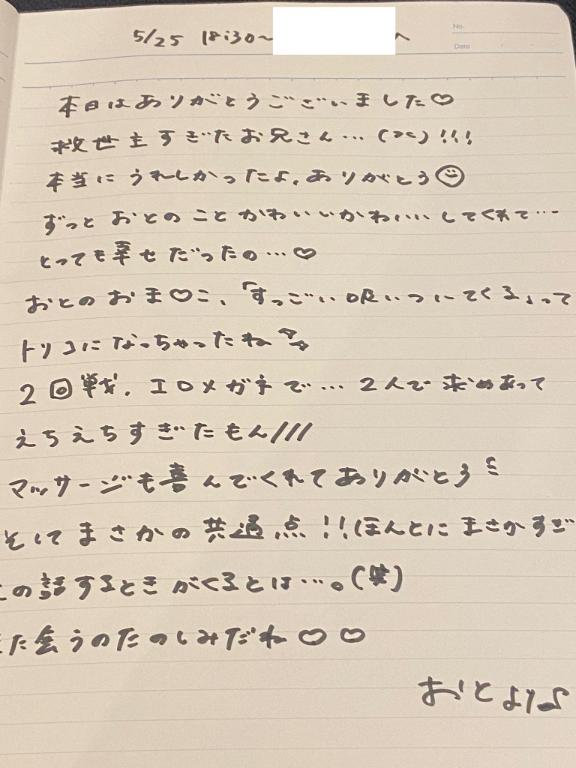 5/25 18:30〜 へ
No.
Date
本日はありがとうございました♡
救世主すぎたお兄さん…(><)!!!
本当にうれしかったよ。ありがとう☺
ずっとおとのことかわいいかわいいしてくれて…
とっても幸せだったの…♡
おとのおま♡こ、「すっごい吸いついてくる」って
トリコになっちゃったね
2回戦、エロメガネで…2人で求めあって
えちえちすぎたもん///
マッサージも喜んでくれてありがとう
そしてまさかの共通点!!ほんとにまさかすぎ
の話するときがくるとは…。(笑)
た会うのたのしみだね♡♡
おとより♪